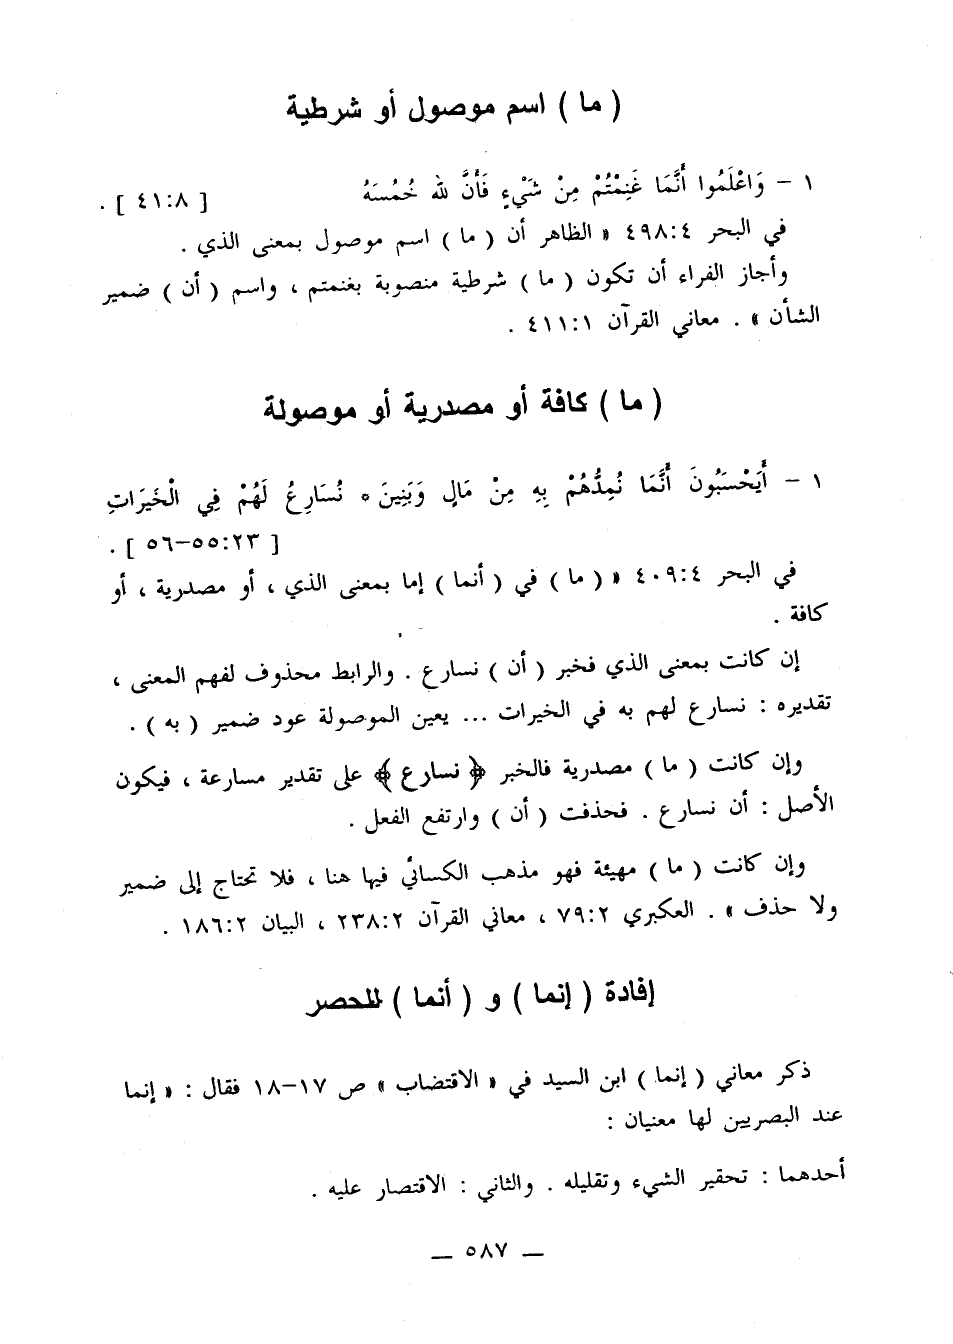 ( ما ) اسم موصول أو شرطية
١ – وَاعْلَمُوا أَنَّمَا غَنِمْتُمْ مِنْ شَيْءٍ فَأَنَّ لله خُمُسَهُ [ ٤١:٨ ] .
في البحر ٤٩٨:٤ « الظاهر أن ( ما ) اسم موصول بمعنى الذي .
وأجاز الفراء أن تكون ( ما ) شرطية منصوبة بغنمتم ، واسم ( أن ) ضمير
الشأن » . معاني القرآن ٤١١:١ .
( ما ) كافة أو مصدرية أو موصولة
١ – أَيَحْسَبُونَ أَنَّمَا نُمِدُّهُمْ بِهِ مِنْ مَالٍ وَبَنِينَ * نُسَارِعُ لَهُمْ فِي الْخَيَرَاتِ
[ ٥٥:٢٣–٥٦ ] .
في البحر ٤٠٩:٤ « ( ما ) في ( أنما ) إما بمعنى الذي ، أو مصدرية ، أو
كافة .
إن كانت بمعنى الذي فخبر ( أن ) نسارع . والرابط محذوف لفهم المعنى ،
تقديره : نسارع لهم به في الخيرات ... يعين الموصولة عود ضمير ( به ) .
وإن كانت ( ما ) مصدرية فالخبر ﴿ نسارع ﴾ على تقدير مسارعة ، فيكون
الأصل : أن نسارع . فحذفت ( أن ) وارتفع الفعل .
وإن كانت ( ما ) مهيئة فهو مذهب الكسائي فيها هنا ، فلا تحتاج إلى ضمير
ولا حذف » . العكبري ٧٩:٢ ، معاني القرآن ٢٣٨:٢ ، البيان ١٨٦:٢ .
إفادة ( إنما ) و ( أنما ) للحصر
ذكر معاني ( إنما ) ابن السيد في « الاقتضاب » ص ١٧–١٨ فقال : « إنما
عند البصريين لها معنيان :
أحدهما : تحقير الشيء وتقليله . والثاني : الاقتصار عليه .
— ٥٨٧ —